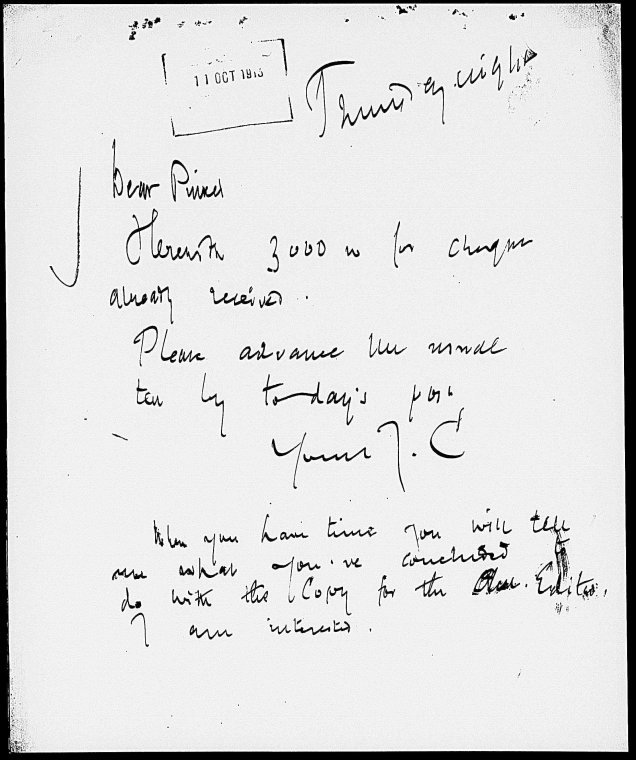 11 OCT 1913
Thursday night
Dear Pinker
Herewith 3000 w for cheque
already received.
Please advance the usual
ten by to-day's post
Yours J. C
When you have time you will tell
me what you've concluded to
do with the Copy for the Am. Editor.
I am interested.